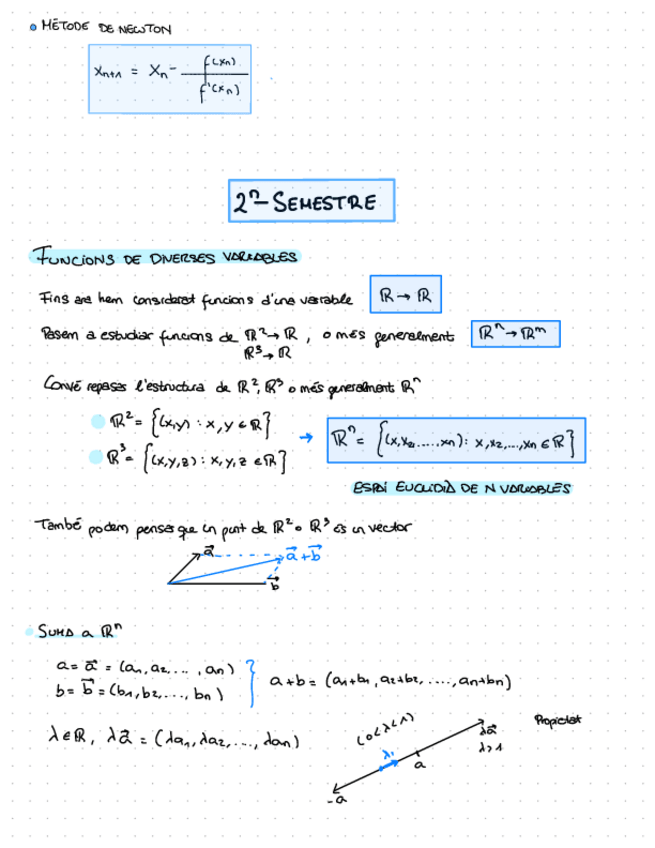 • MÈTODE DE NEWTON
xₙ₊₁ = xₙ - f(xₙ) / f'(xₙ)
2ⁿ SEMESTRE
FUNCIONS DE DIVERSES VARIABLES
Fins ara hem considerat funcions d'una variable ℝ → ℝ
Pasem a estudiar funcions de ℝ² → ℝ, o més generalment ℝⁿ → ℝᵐ
ℝ³ → ℝ
Convé repasar l'estructura de ℝ², ℝ³ o més generalment ℝⁿ
ℝ² = {(x,y) : x, y ∈ ℝ} → ℝⁿ = {(x,x₂,....,xn) : x,x₂,...,xn ∈ ℝ}
ℝ³ = {(x,y,z) : x,y,z ∈ ℝ}
ESPAI EUCLIDIÀ DE N VARIABLES
També podem pensar que un punt de ℝ² o ℝ³ és un vector
a⃗ a⃗ + b⃗
b⃗
SUMA a ℝⁿ
a = a⃗ = (a₁, a₂, ..., an)
b = b⃗ = (b₁, b₂, ..., bn) } a+b = (a₁+b₁, a₂+b₂, ...., an+bn)
λ ∈ ℝ, λa⃗ = (λa₁, λa₂, ..., λan)
(0<λ<1) λa⃗ Propietat
λ>1
a
-a